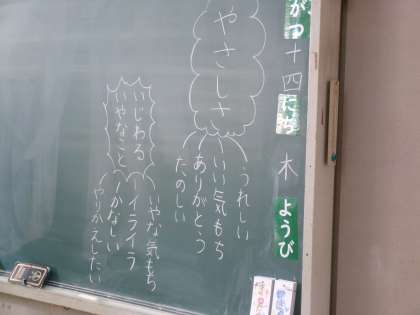 がつ十四にち 木 ようび
やさしさ
うれしい
いい気もち
ありがとう
たのしい
いじわる
いやなこと
いやな気もち
イライラ
かなしい
やりかえしたい